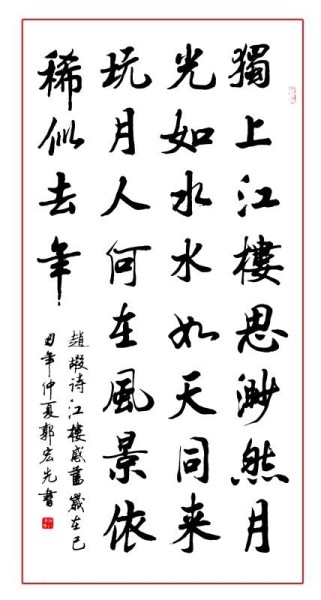 獨上江樓思渺然月
光如水水如天同来
玩月人何在風景依
稀似去年
趙嘏诗江樓感舊歲在己
丑年仲夏郭宏先書